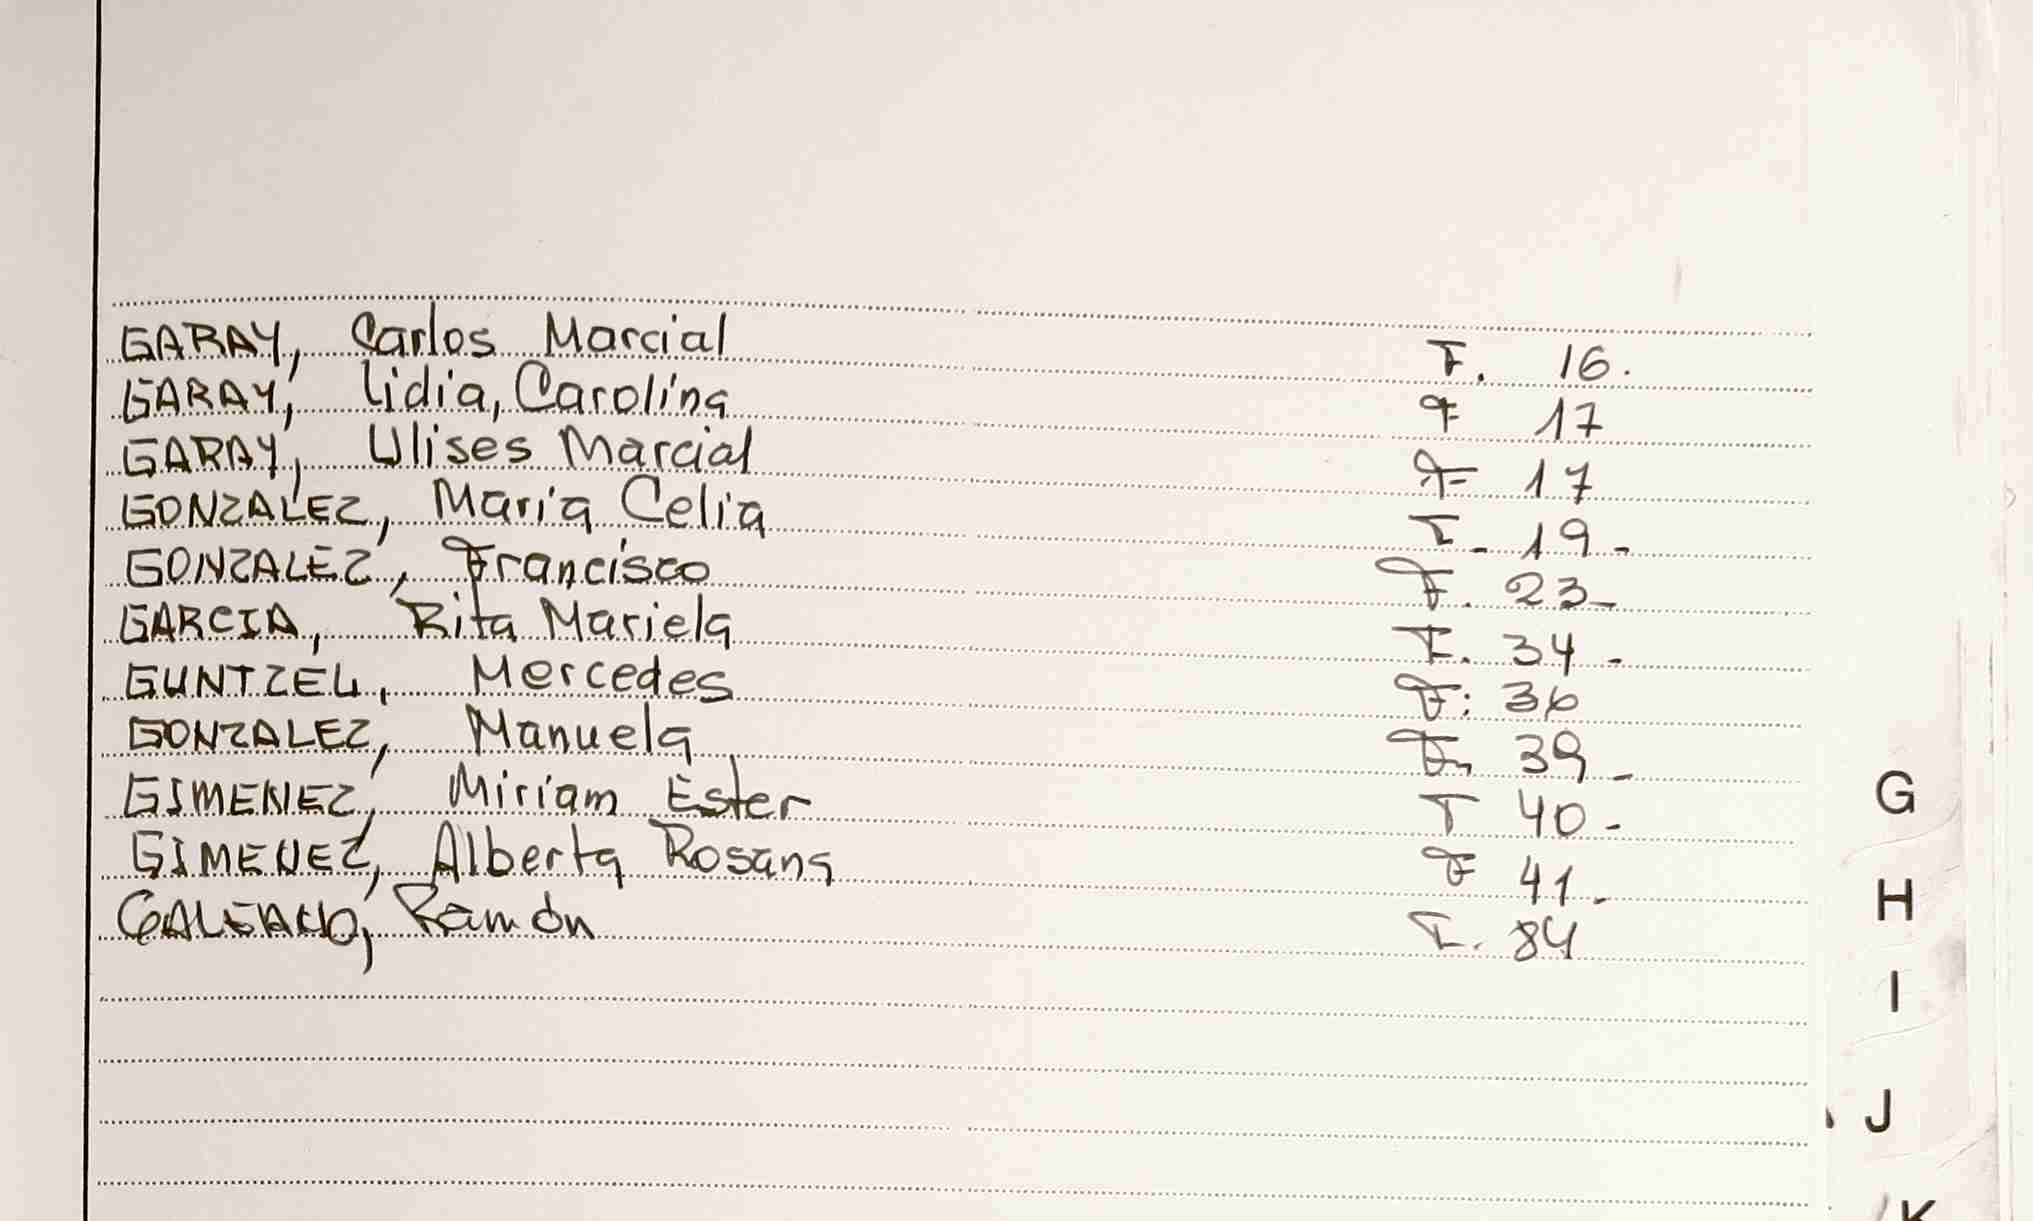 GARAY, Carlos Marcial F. 16.
GARAY, Lidia, Carolina F 17
GARAY, Ulises Marcial F 17
GONZALEZ, Maria Celia F. 19-
GONZALEZ, Francisco F. 23-
GARCIA, Rita Mariela F. 34-
GUNTZEL, Mercedes F: 36
GONZALEZ, Manuela F. 39-
GIMENEZ, Miriam Ester F 40-
GIMENEZ, Alberta Rosana F 41-
GALEANO, Ramón F. 84
G
H
I
J
K